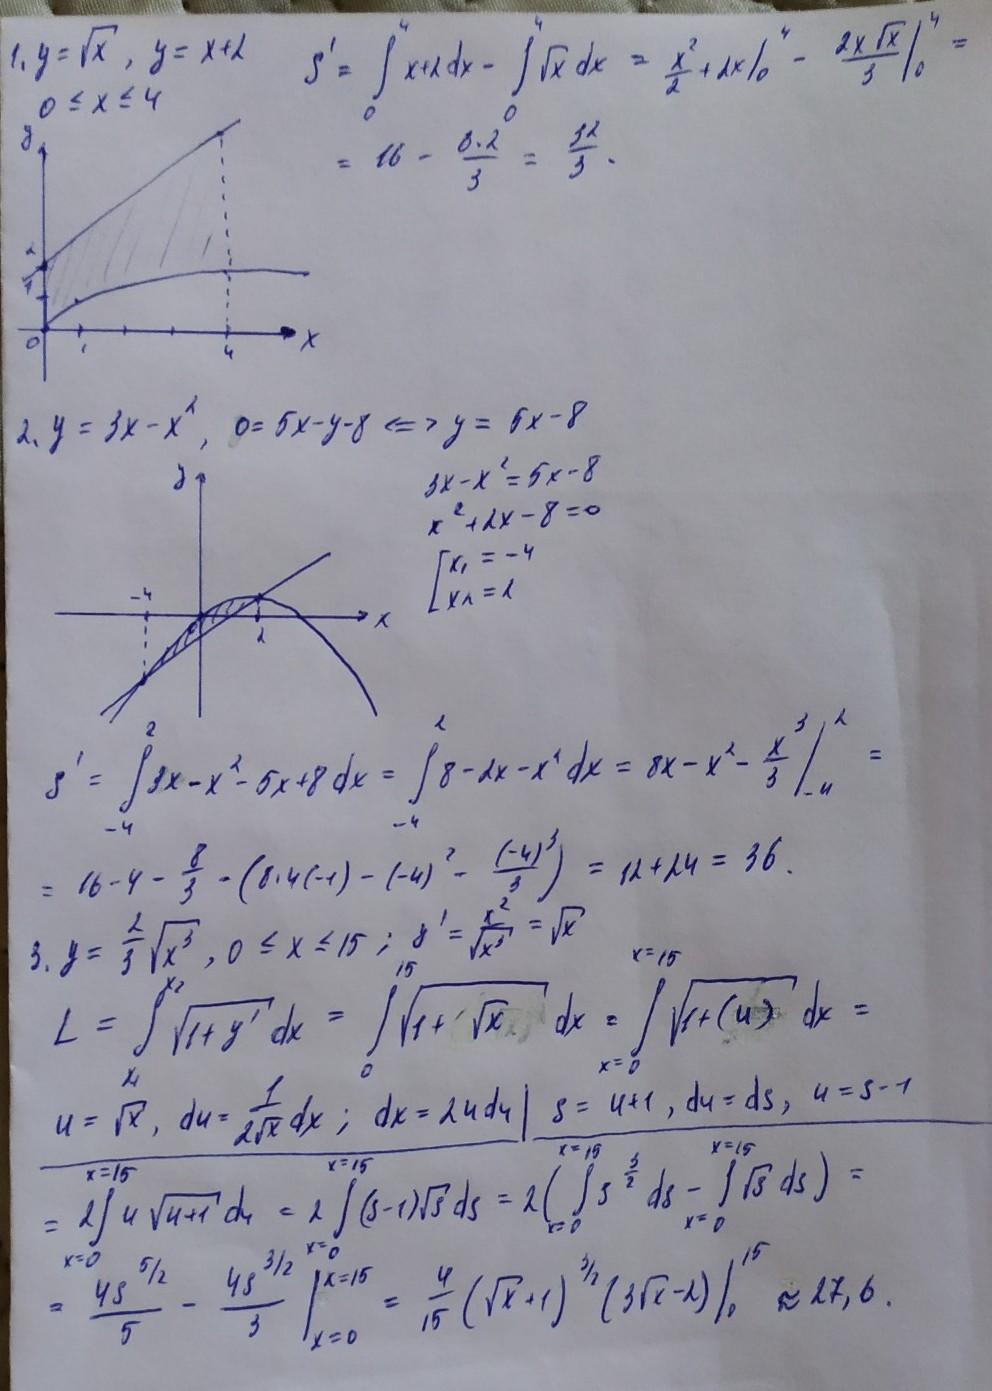 1. y = √x , y = x+2
0 ≤ x ≤ 4
S' = ∫₀⁴ x+2 dx - ∫₀⁴ √x dx = x²/2 + 2x |₀⁴ - 2x√x/3 |₀⁴ =
= 16 - 8·2/3 = 32/3 .
y
2
1
0 1 4 x
2. y = 3x - x² , 0 = 5x-y-8 <=> y = 5x-8
3x - x² = 5x-8
x² + 2x - 8 = 0
[ x₁ = -4
x₂ = 2
y
-4 2 x
S' = ∫₋₄² 3x - x² - 5x + 8 dx = ∫₋₄² 8 - 2x - x² dx = 8x - x² - x³/3 |₋₄² =
= 16 - 4 - 8/3 - (8·4(-1) - (-4)² - (-4)³/3) = 12 + 24 = 36 .
3. y = 2/3 √x³ , 0 ≤ x ≤ 15 ; y' = x²/√x³ = √x
L = ∫ₓ₁ˣ² √(1+y') dx = ∫₀¹⁵ √(1+√x) dx = ∫ₓ₌₀ˣ⁼¹⁵ √(1+(u)) dx =
u = √x , du = 1/(2√x) dx ; dx = 2u du | s = u+1 , du = ds , u = s-1
= 2∫ₓ₌₀ˣ⁼¹⁵ u √(u+1) du = 2 ∫ₓ₌₀ˣ⁼¹⁵ (s-1)√s ds = 2(∫ₓ₌₀ˣ⁼¹⁵ s^(3/2) ds - ∫ₓ₌₀ˣ⁼¹⁵ √s ds) =
= 4s^(5/2)/5 - 4s^(3/2)/3 |ₓ₌₀ˣ⁼¹⁵ = 4/15 (√x+1)^(3/2) (3√x-2) |₀¹⁵ ≈ 27,6 .